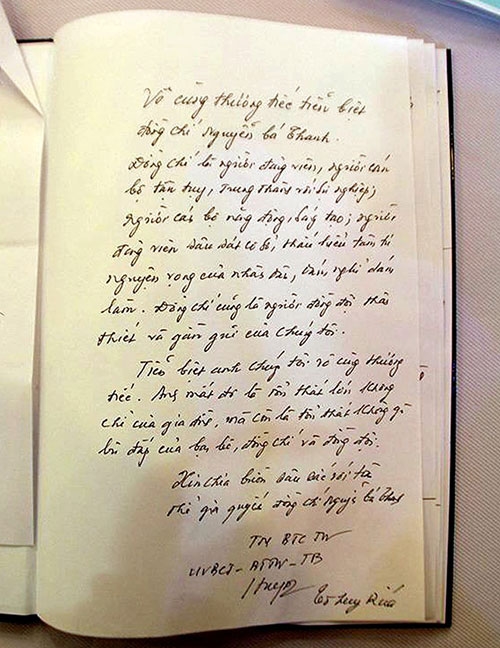 Vô cùng thương tiếc tiễn biệt
đồng chí Nguyễn Bá Thanh.
Đồng chí là người đảng viên, người cán
bộ tận tụy, trung thành với sự nghiệp;
người cán bộ năng động, sáng tạo; người
đảng viên sâu sát cơ sở, thấu hiểu tâm tư
nguyện vọng của nhân dân, dám nghĩ dám
làm. Đồng chí cũng là người đồng đội thân
thiết và gần gũi của chúng tôi.
Tiễn biệt anh chúng tôi vô cùng thương
tiếc. Anh mất đi là tổn thất lớn không
chỉ của gia đình, mà còn là tổn thất không gì
bù đắp của bạn bè, đồng chí và đồng đội.
Xin chia buồn sâu sắc với toàn
thể gia quyến đồng chí Nguyễn Bá Thanh
TM BTC TW
UVBCT - BTTW - TB
Tô Huy Rứa